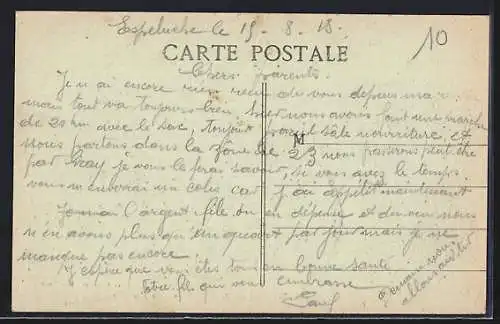 Espeluche le 15 - 8 - 18.
10
CARTE POSTALE
Chers parents.
Je n ai encore rien reçu de vous depuis ma
main tout va toujours bien. hier nous avons fait une marche
de 20 km avec le sac, Toujours sale nourriture et
nous partons dans la zone le 23 nous passerons peut être
par je vous le ferai savoir, si vous avez le temps.
vous m enverrai un colis car j ai appétit maintenant
l argent file on en dépense et demain nous
n en avons plus qu un quart par jour mais je ne
manque pas encore.
J espère que vous êtes tous en bonne santé
Votre fils qui vous embrasse
M
demain nous
allons au tir